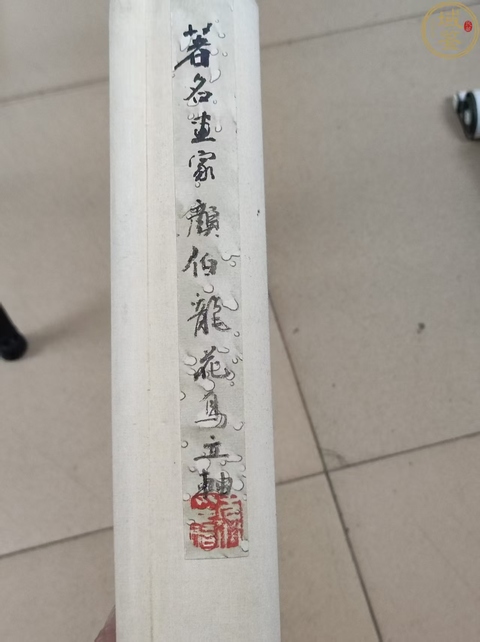 著名画家顏伯龍花鳥立軸